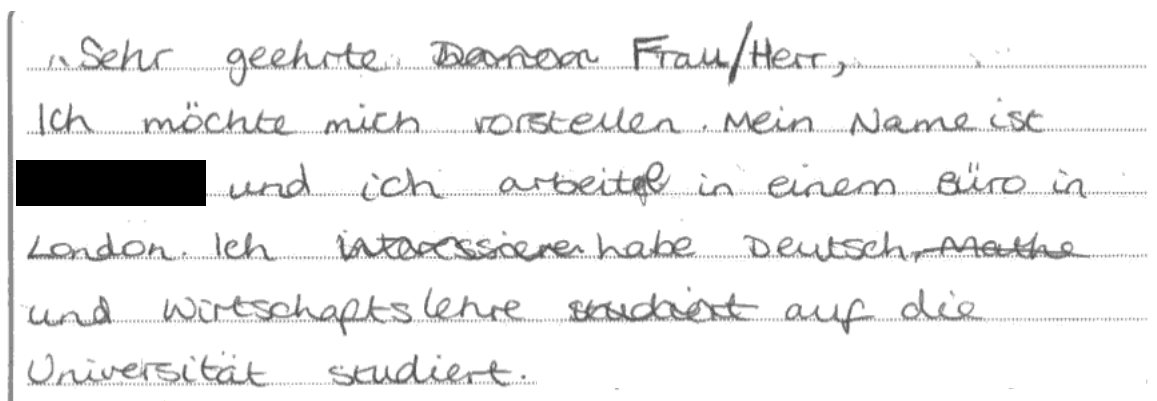 „Sehr geehrte Damen Frau/Herr,
Ich möchte mich vorstellen. Mein Name ist
und ich arbeite in einem Büro in
London. Ich interessiere habe Deutsch, Mathe
und Wirtschaftslehre studiert auf die
Universität studiert.